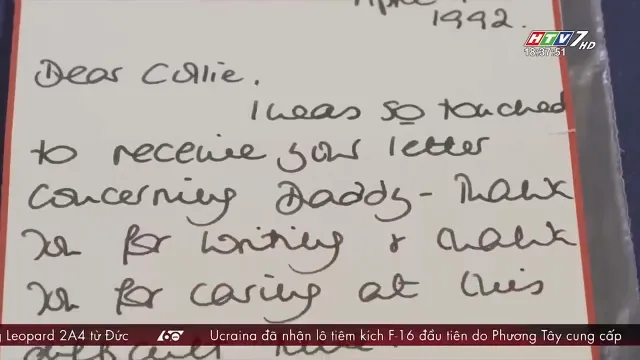 April
1992.
HTV7 HD
18:37:51
Dear Collie.
I was so touched
to receive your letter
concerning Daddy - Thank
you for writing & thank
you for caring at this
difficult time
g Leopard 2A4 từ Đức 60 Ucraina đã nhận lô tiêm kích F-16 đầu tiên do Phương Tây cung cấp